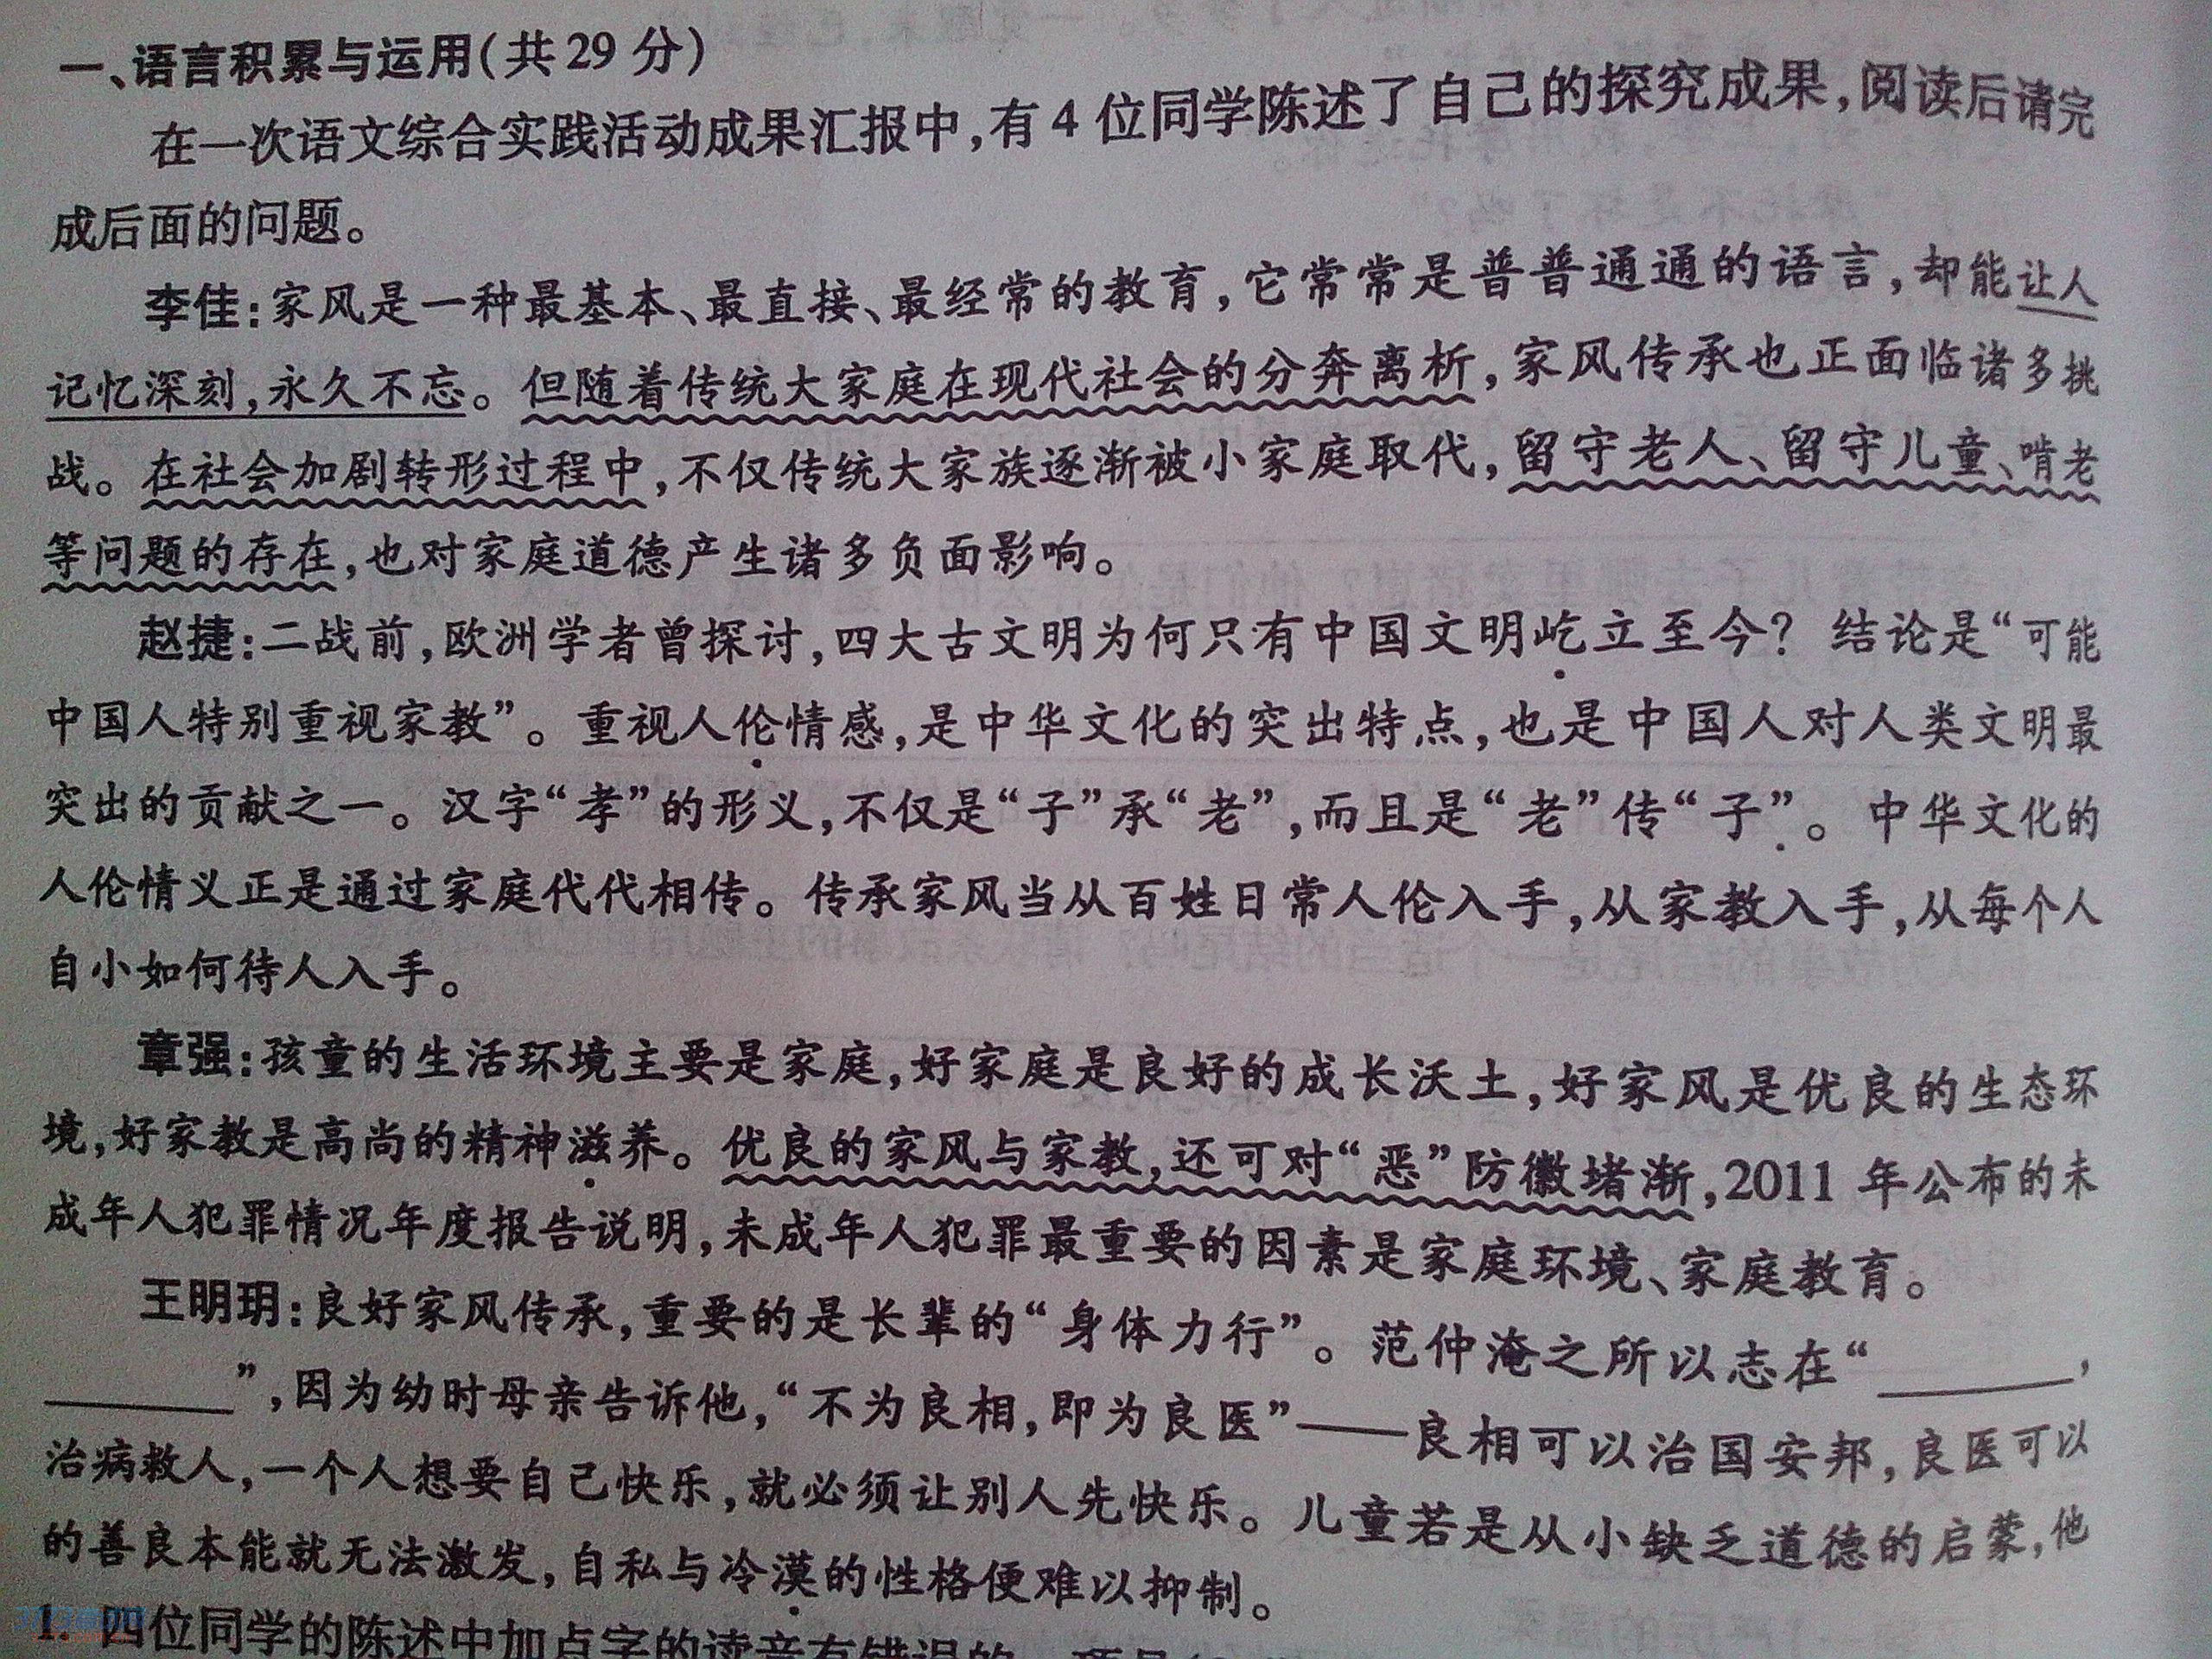 一、语言积累与运用(共29分)
在一次语文综合实践活动成果汇报中,有4位同学陈述了自己的探究成果,阅读后请完
成后面的问题。
李佳:家风是一种最基本、最直接、最经常的教育,它常常是普普通通的语言,却能让人
记忆深刻,永久不忘。但随着传统大家庭在现代社会的分奔离析,家风传承也正面临诸多挑
战。在社会加剧转形过程中,不仅传统大家族逐渐被小家庭取代,留守老人、留守儿童、啃老
等问题的存在,也对家庭道德产生诸多负面影响。
赵捷:二战前,欧洲学者曾探讨,四大古文明为何只有中国文明屹立至今?结论是“可能
中国人特别重视家教”。重视人伦情感,是中华文化的突出特点,也是中国人对人类文明最
突出的贡献之一。汉字“孝”的形义,不仅是“子”承“老”,而且是“老”传“子”。中华文化的
人伦情义正是通过家庭代代相传。传承家风当从百姓日常人伦入手,从家教入手,从每个人
自小如何待人入手。
章强:孩童的生活环境主要是家庭,好家庭是良好的成长沃土,好家风是优良的生态环
境,好家教是高尚的精神滋养。优良的家风与家教,还可对“恶”防徽堵渐,2011年公布的未
成年人犯罪情况年度报告说明,未成年人犯罪最重要的因素是家庭环境、家庭教育。
王明玥:良好家风传承,重要的是长辈的“身体力行”。范仲淹之所以志在“________,
________”,因为幼时母亲告诉他,“不为良相,即为良医”——良相可以治国安邦,良医可以
治病救人,一个人想要自己快乐,就必须让别人先快乐。儿童若是从小缺乏道德的启蒙,他
的善良本能就无法激发,自私与冷漠的性格便难以抑制。
1. 四位同学的陈述中加点字的读音有错误的一项是